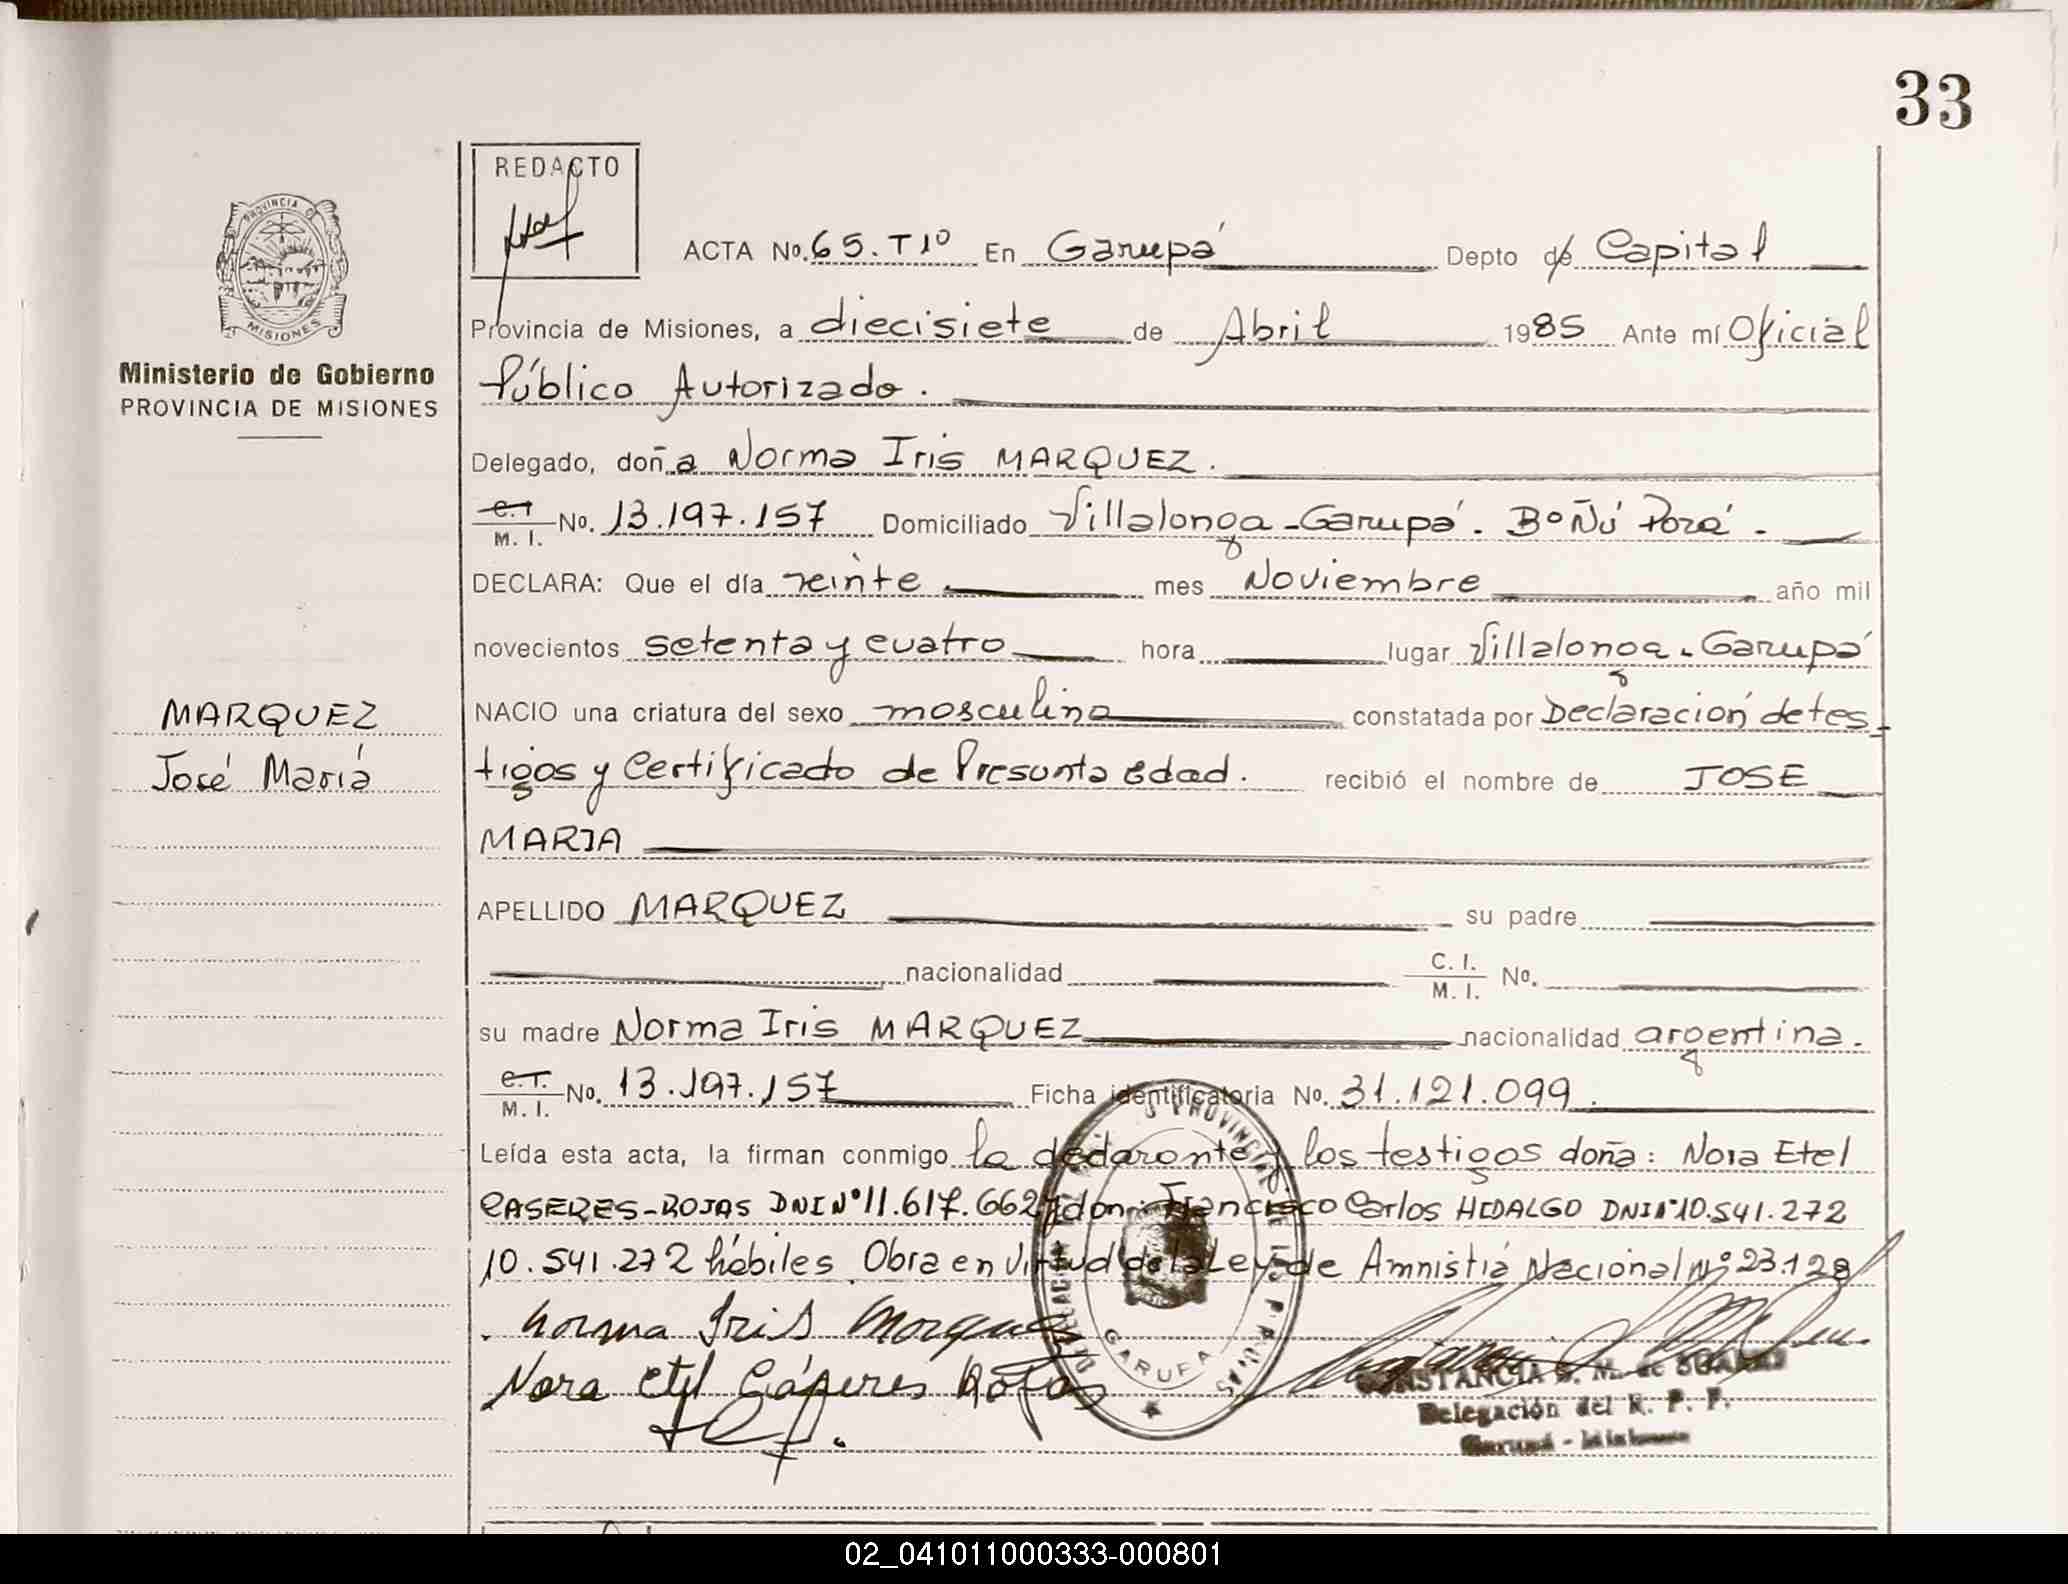 33
REDACTO
ACTA No. 65. T1º En Garupá Depto de Capital
PROVINCIA DE
MISIONES
Provincia de Misiones, a diecisiete de Abril 1985 Ante mí Oficial
Ministerio de Gobierno
PROVINCIA DE MISIONES
Público Autorizado.
Delegado, doña Norma Iris MARQUEZ.
C.I. / M. I. No. 13.197.157 Domiciliado Villalonga - Garupá. Bº Ñú Porá -
DECLARA: Que el día veinte mes Noviembre año mil
novecientos setenta y cuatro hora lugar Villalonga - Garupá
MARQUEZ
José María
NACIO una criatura del sexo masculino constatada por Declaración de tes-
tigos y Certificado de Presunta edad. recibió el nombre de JOSE
MARIA
APELLIDO MARQUEZ su padre
nacionalidad C. I. / M. I. No.
su madre Norma Iris MARQUEZ nacionalidad argentina.
C.I. / M. I. No. 13.197.157 Ficha identificatoria No. 31.121.099.
Leída esta acta, la firman conmigo la declarante y los testigos doña: Nora Etel
CASERES-ROJAS DNI Nº 11.617.662 y don: Francisco Carlos HIDALGO DNI Nº 10.541.272
10.541.272 hábiles. Obra en virtud de la Ley de Amnistía Nacional Nº 23.128
Norma Iris Marquez
Nora Etel Cáseres Rojas
GARUPA
CONSTANCIA S. M. de SUAREZ
Delegación del R. P. P.
Garupá - Misiones
02_041011000333-000801